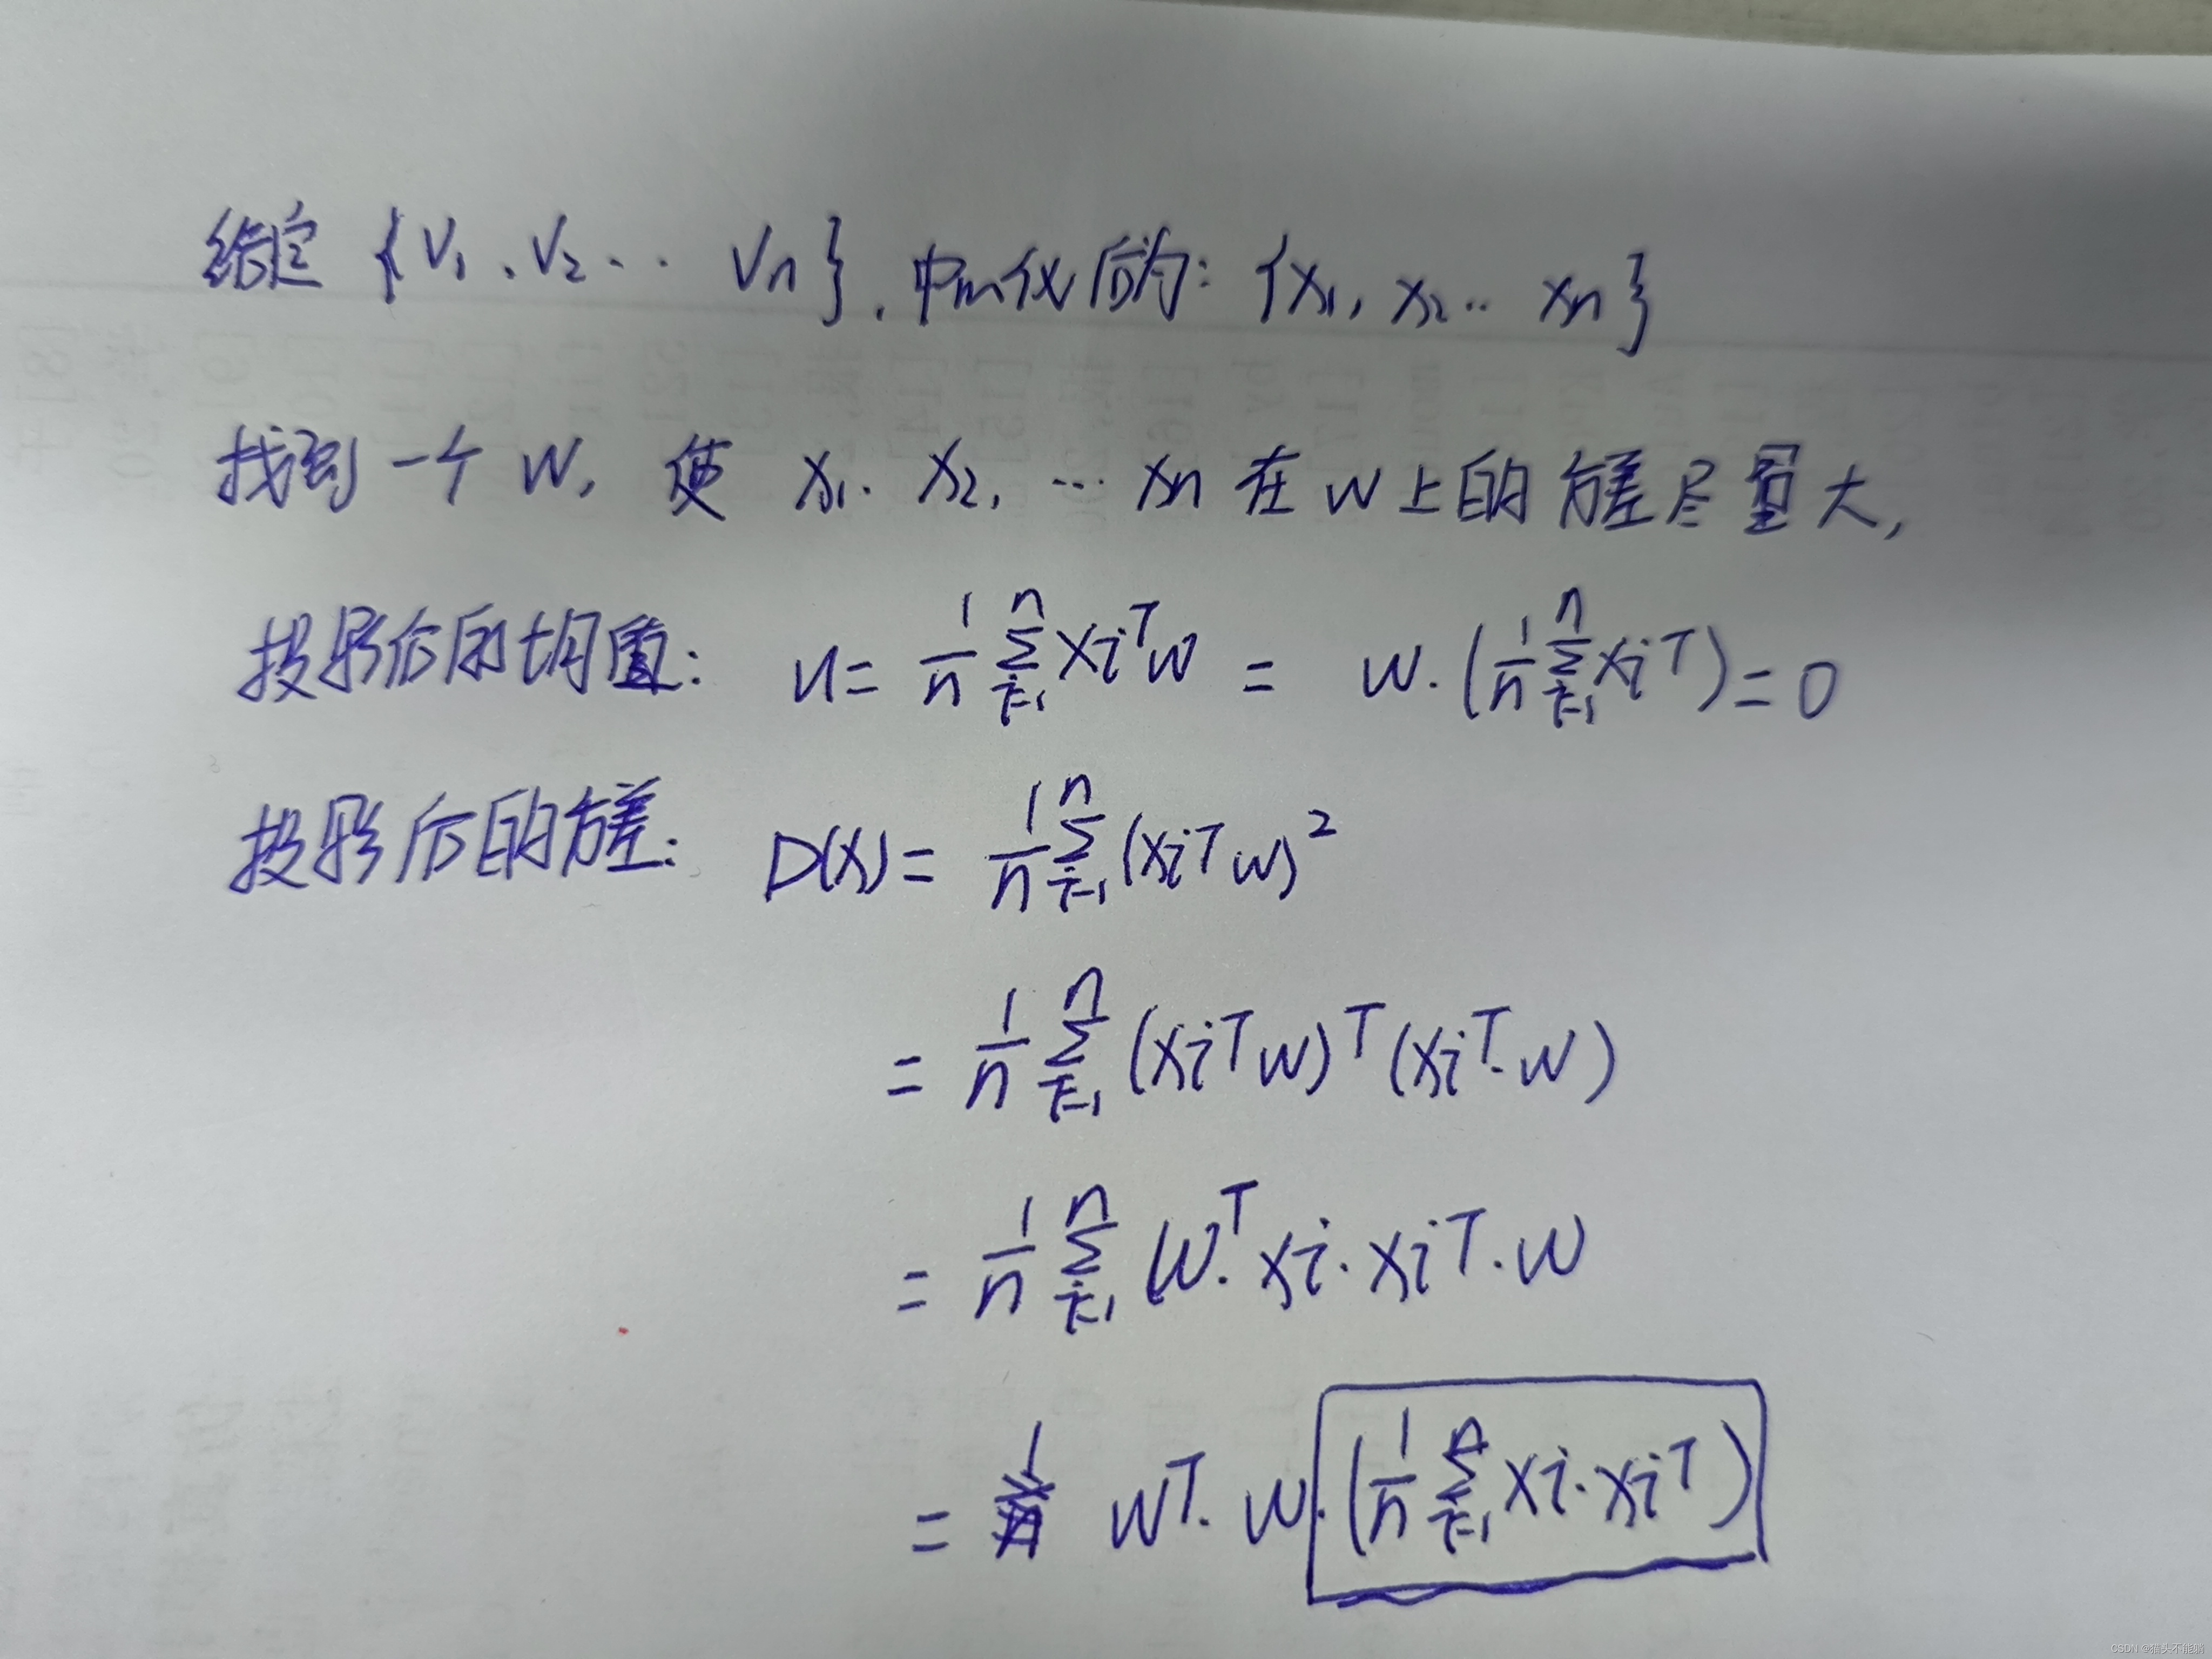 给定 {V₁、V₂… Vn}, 中心化后的: {x₁, x₂… xn}
找到一个 W, 使 x₁. x₂, … xn 在 W 上的方差尽量大,
投影后的均值: u = 1/n Σ(i=1→n) xiᵀw = w·(1/n Σ(i=1→n) xiᵀ) = 0
投影后的方差: D(x) = 1/n Σ(i=1→n) (xiᵀ w)²
= 1/n Σ(i=1→n) (xiᵀ w)ᵀ (xiᵀ·w)
= 1/n Σ(i=1→n) Wᵀ·xi·xiᵀ·w
= wᵀ·w·(1/n Σ(i=1→n) xi·xiᵀ)
CSDN @猫头不能躺